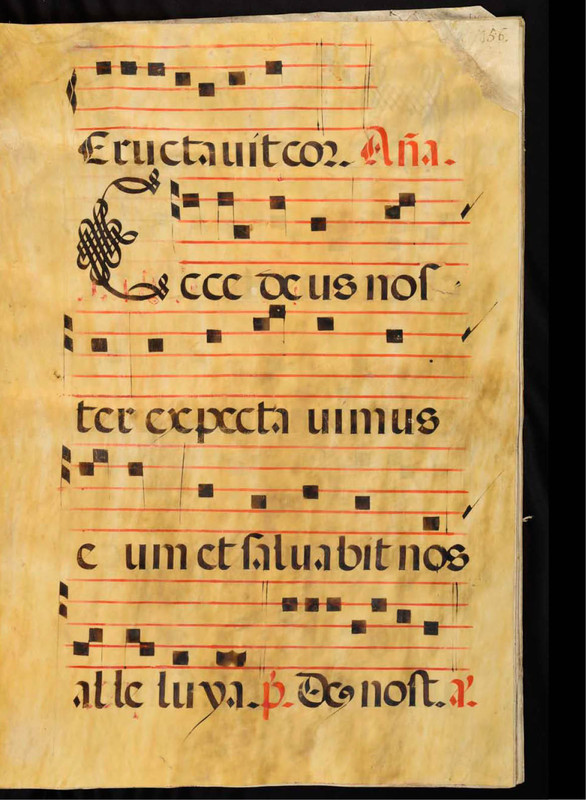 156.
Eructauit cor. Aña.
Ecce deus nos
ter expecta uimus
e um et saluabit nos
alle luya. p. De9 nost. a.